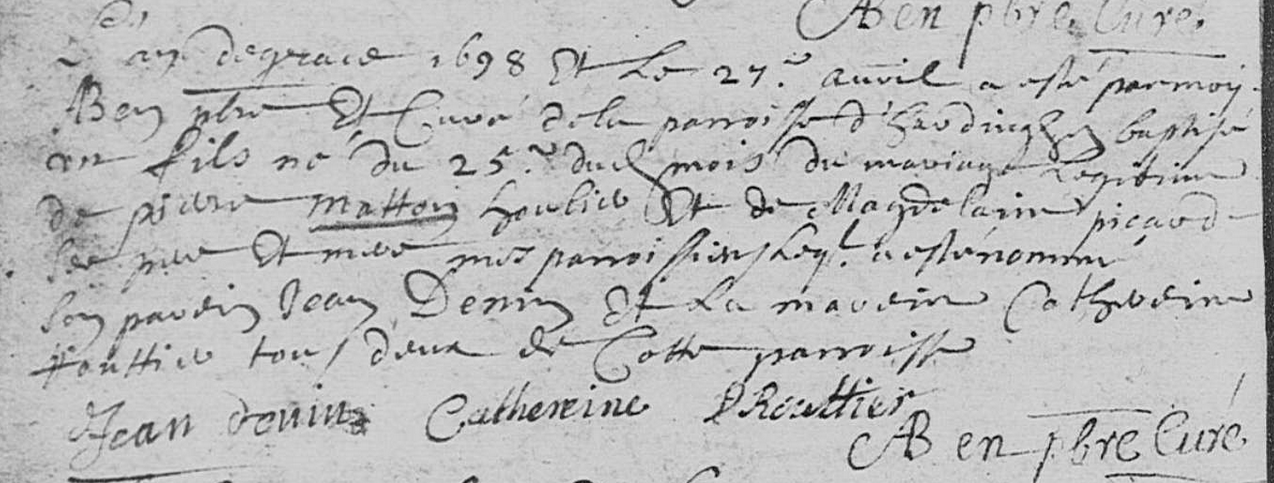 ABen pbre. Curé.
L'an de grace 1698 Et Le 27.e auvril a esté par moy
ABen pbre Et Curé de la parroisse d'hardinghen baptisé
un fils né du 25.e dud. mois du mariage Legitime
de pierre Matton Et de Magdelaine picard
Ses pere Et mere mes parroissiens Leql. a esté nommé
Son parein Jean Denin Et La mareine Catherine
tous deux de Cette parroisse
Jean denin Catherine Routtier
AB en pbre Curé